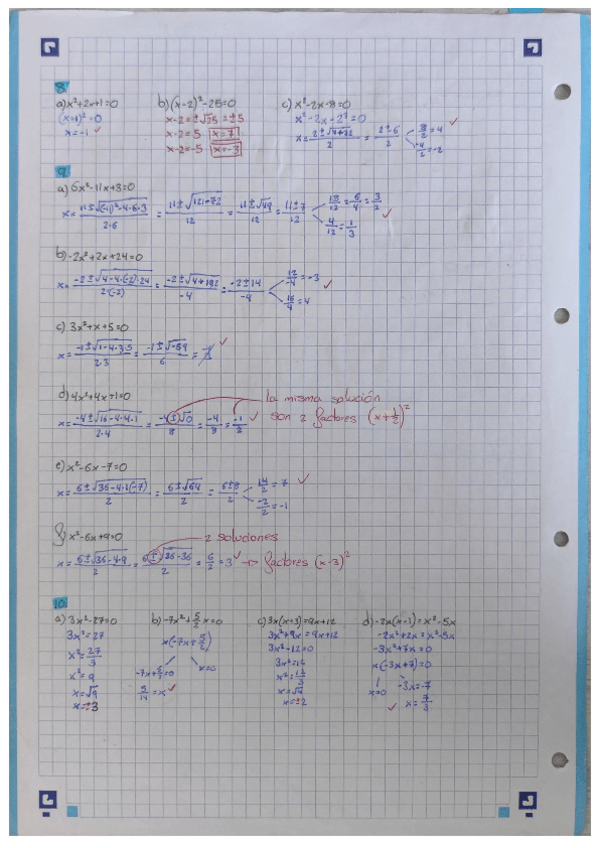 8
a) x²+2x+1=0
(x+1)²=0
x=-1 ✓
b) (x-2)²-25=0
x-2=±√25=±5
x-2=5 x=7
x-2=-5 x=-3
c) x²-2x-8=0
x=(2±√(4+32))/2 = (2±6)/2
8/2=4 ✓
-4/2=-2
9
a) 6x²-11x+3=0
x=(11±√((-11)²-4·6·3))/(2·6) = (11±√(121-72))/12 = (11±√49)/12 = (11±7)/12
18/12=6/4=3/2 ✓
4/12=1/3
b) -2x²+2x+24=0
x=(-2±√(4-4·(-2)·24))/(2·(-2)) = (-2±√(4+192))/-4 = (-2±14)/-4
12/-4=-3 ✓
16/4=4
c) 3x²+x+5=0
x=(-1±√(1-4·3·5))/(2·3) = (-1±√-59)/6 = ✓
d) 4x²+4x+1=0
la misma solución
x=(-4±√(16-4·4·1))/(2·4) = (-4±√0)/8 = -4/8 = -1/2 ✓ son 2 factores (x+1/2)²
e) x²-6x-7=0
x=(6±√(36-4·1(-7)))/2 = (6±√64)/2 = (6±8)/2
14/2=7 ✓
-2/2=-1
f) x²-6x+9=0
2 soluciones
x=(6±√(36-4·9))/2 = (6±√(36-36))/2 = 6/2 = 3 ✓ → factores (x-3)²
10
a) 3x²-27=0
3x²=27
x²=27/3
x²=9
x=√9
x=±3
b) -7x²+5/2 x=0
x(-7x+5/2)
-7x+5/2=0 x=0
5/14=x ✓
c) 3x(x+3)=9x+12
3x²+9x=9x+12
3x²-12=0
3x²=12
x²=12/3
x=√4
x=±2
d) -2x(x-1)=x²-5x
-2x²+2x=x²-5x
-3x²+7x=0
x(-3x+7)=0
x=0 -3x=-7
✓ x=7/3